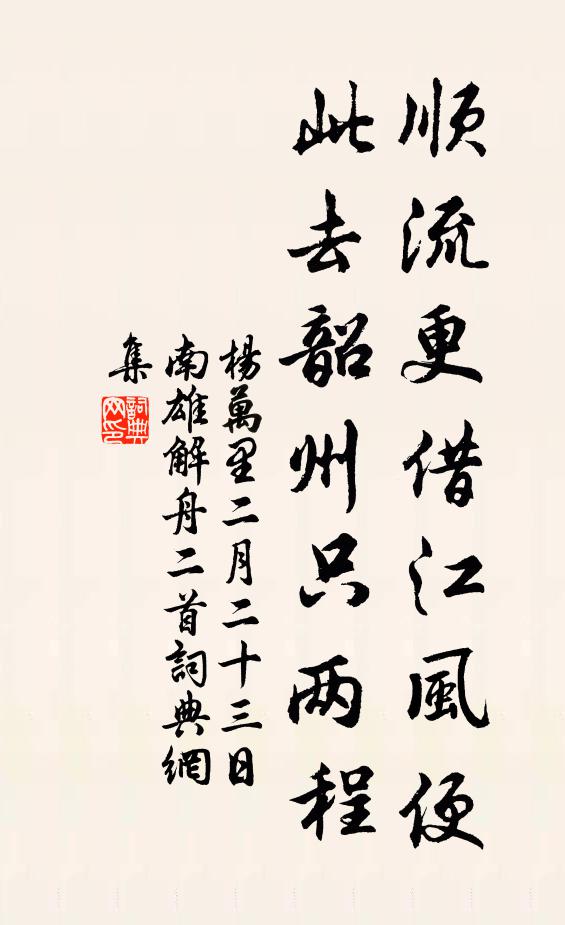 順流更借江風便
此去韶州只两程
楊萬里二月二十三日
南雄解舟二首詞典網
集
詞典
网印